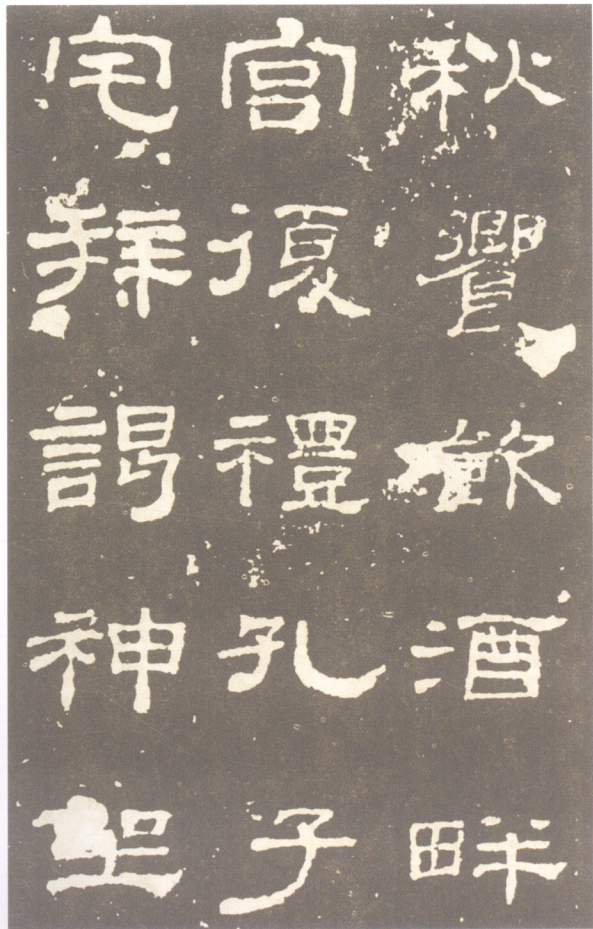 秋饗飲酒畔
宮復禮孔子
宅拜謁神坐